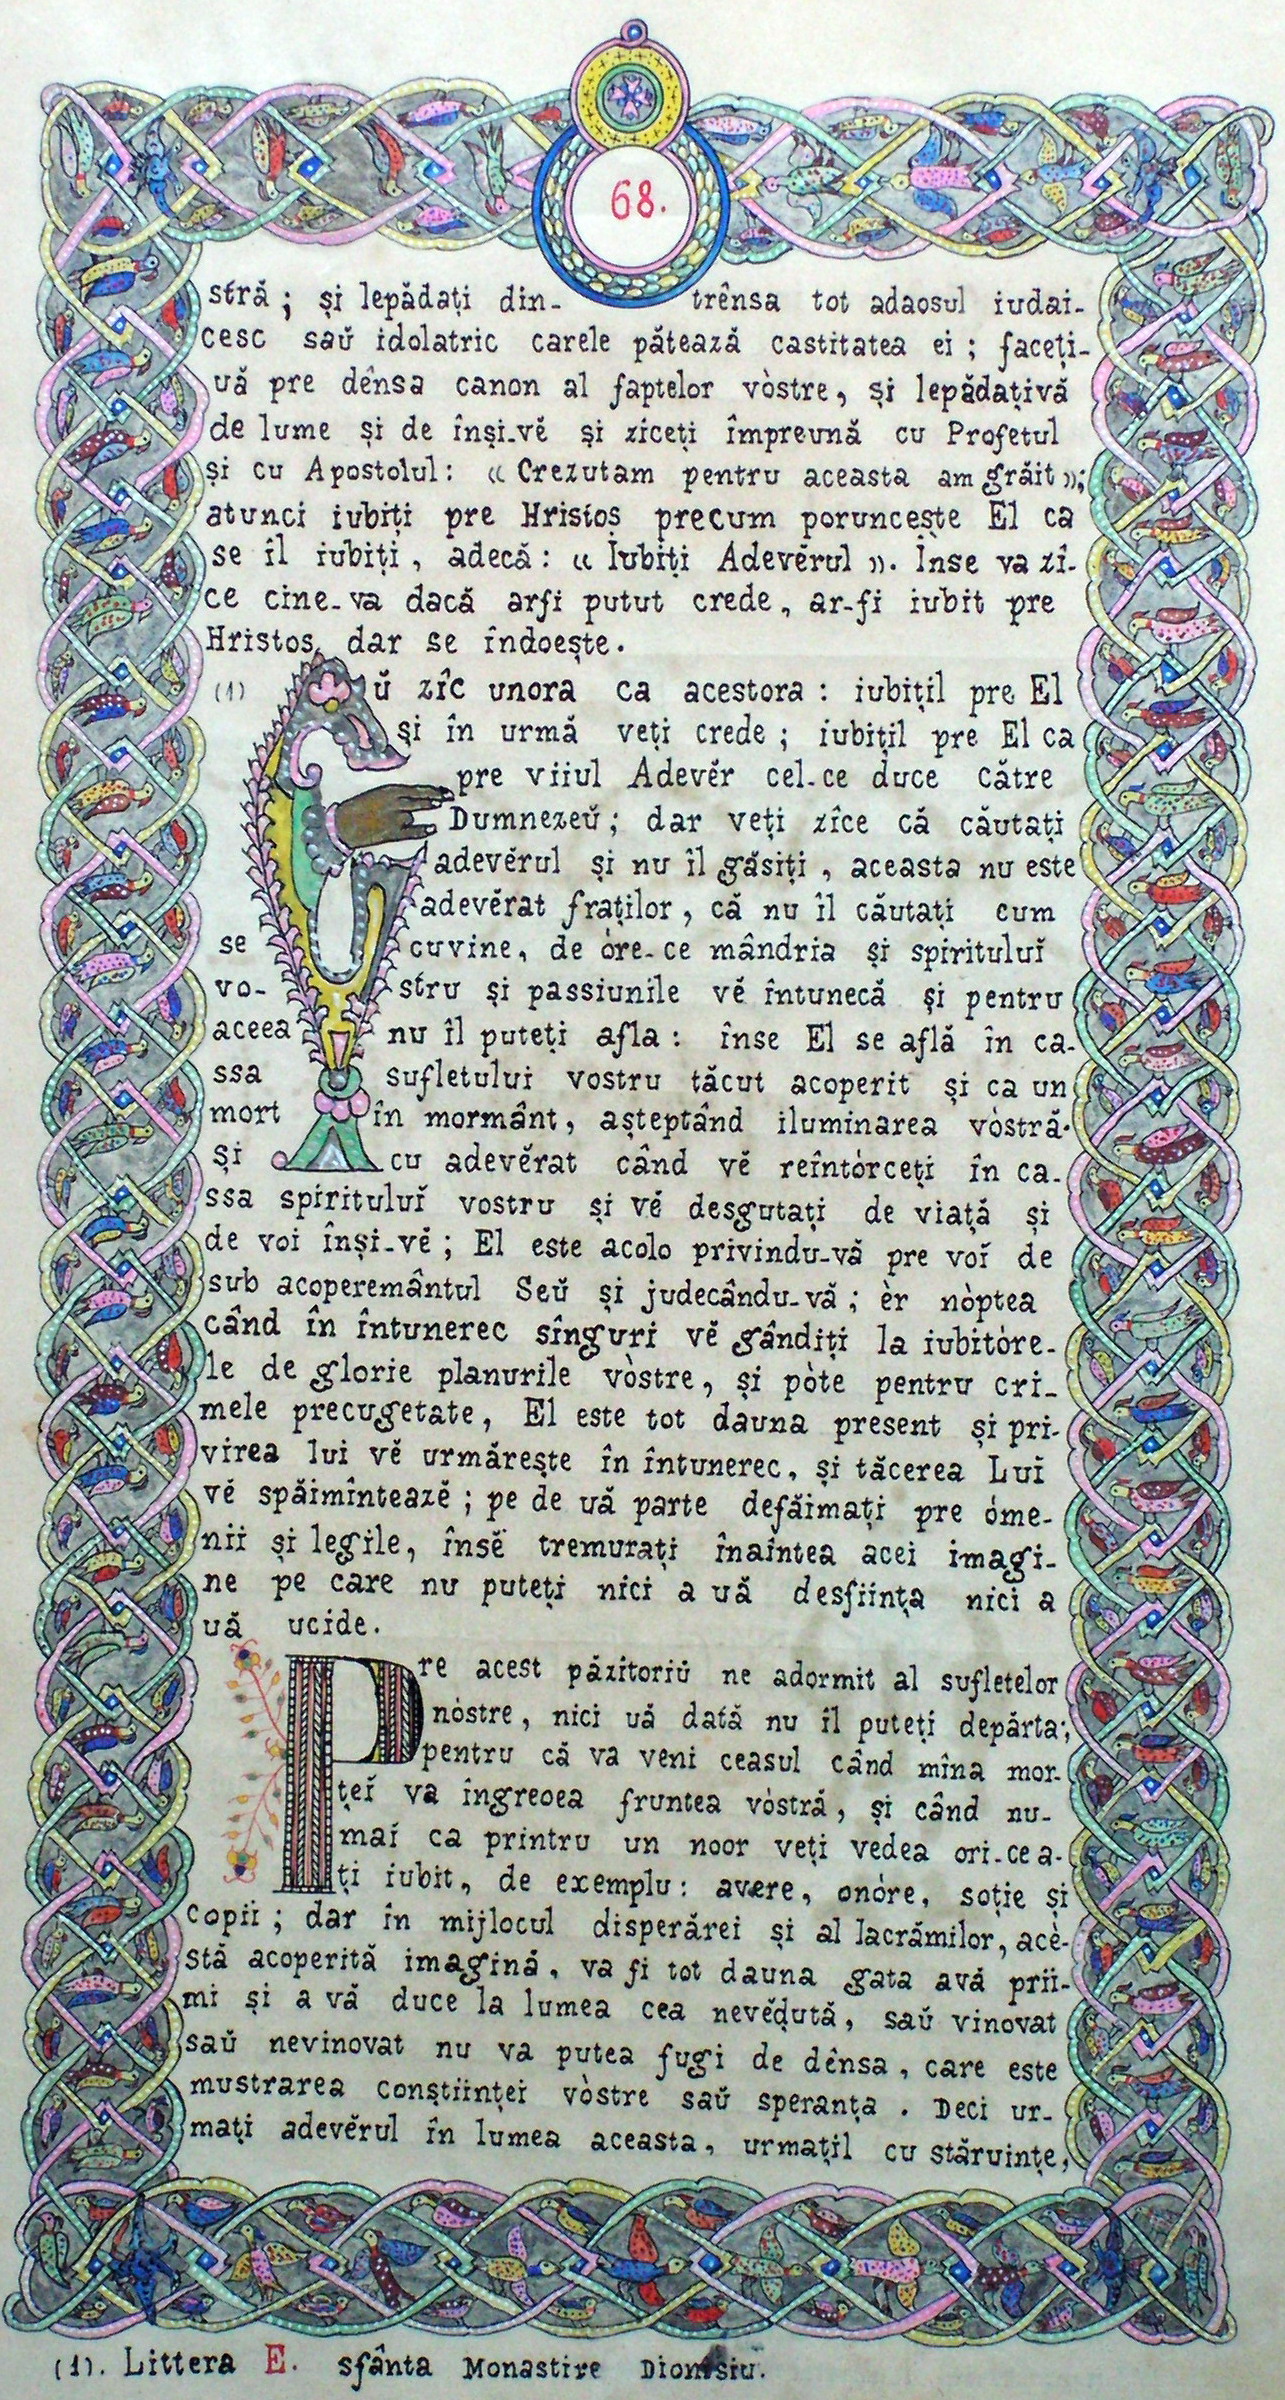 68.
stră; și lepădați din-trênsa tot adaosul iudai-
cesc saŭ idolatric carele pătează castitatea ei; faceți-
uă pre dênsa canon al faptelor vòstre, și lepădațivă
de lume și de înși-vĕ și ziceți împreună cu Profetul
și cu Apostolul: « Crezutam pentru aceasta am grăit »;
atunci iubiți pre Hristos precum poruncește El ca
se îl iubiți, adecă: « Iubiți Adevĕrul ». Însе va zî-
ce cine-va dacă arfi putut crede, ar-fi iubit pre
Hristos, dar se îndoește.
(1) Eŭ zîc unora ca acestora: iubițil pre El
și în urmă veți crede; iubițil pre El ca
pre viiul Adevĕr cel-ce duce către
Dumnezeŭ; dar veți zîce că căutați
adevĕrul și nu îl găsiți, aceasta nu este
adevĕrat fraților, că nu îl căutați cum
se cuvine, de òre-ce mândria și spirituluĭ
vo-stru și passiunile vĕ întunecă și pentru
aceea nu îl puteți afla: înse El se află în ca-
ssa sufletului vostru tăcut acoperit și ca un
mort în mormânt, așteptând iluminarea vòstră.
și cu adevĕrat când vĕ reîntòrceți în ca-
ssa spirituluĭ vostru și vĕ desgutați de viață și
de voi înși-vĕ; El este acolo privindu-vă pre voĭ de
sub acoperemântul Seŭ și judecându-vă; èr nòptea
când în întunerec sînguri vĕ gândiți la iubitòre-
le de glorie planurile vòstre, și pòte pentru cri-
mele precugetate, El este tot dauna present și pri-
virea lui vĕ urmărește în întunerec, și tăcerea Luĭ
vĕ spăimîntează; pe de uă parte defăimați pre òme-
nii și legile, însĕ tremurați înaintea acei imagi-
ne pe care nu puteți nici a uă desființa nici a
uă ucide.
Pre acest păzitoriŭ ne adormit al sufletelor
nòstre, nici uă dată nu îl puteți depărta;
pentru că va veni ceasul când mîna mor-
țeĭ va îngreoea fruntea vòstră, și când nu-
maĭ ca printru un noor veți vedea ori-ce a-
ți iubit, de exemplu: avere, onòre, soție și
copii; dar în mijlocul disperărei și al lacrămilor, acè-
stă acoperită imagină, va fi tot dauna gata avă prii-
mi și a vă duce la lumea cea nevĕdută, saŭ vinovat
saŭ nevinovat nu va putea fugi de dênsa, care este
mustrarea conștiinței vòstre saŭ speranța. Deci ur-
mați adevĕrul în lumea aceasta, urmațil cu stăruințe,
(1). Littera E. sfânta Monastire Dionisiu.